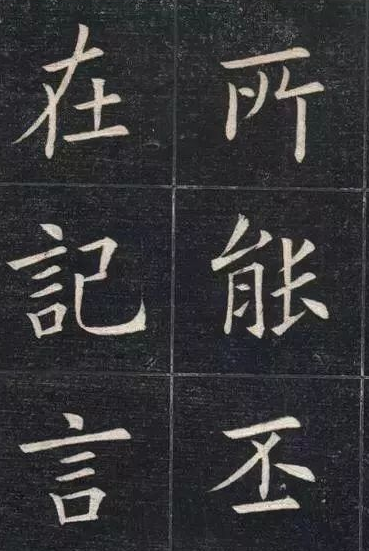 所能丕
在記言